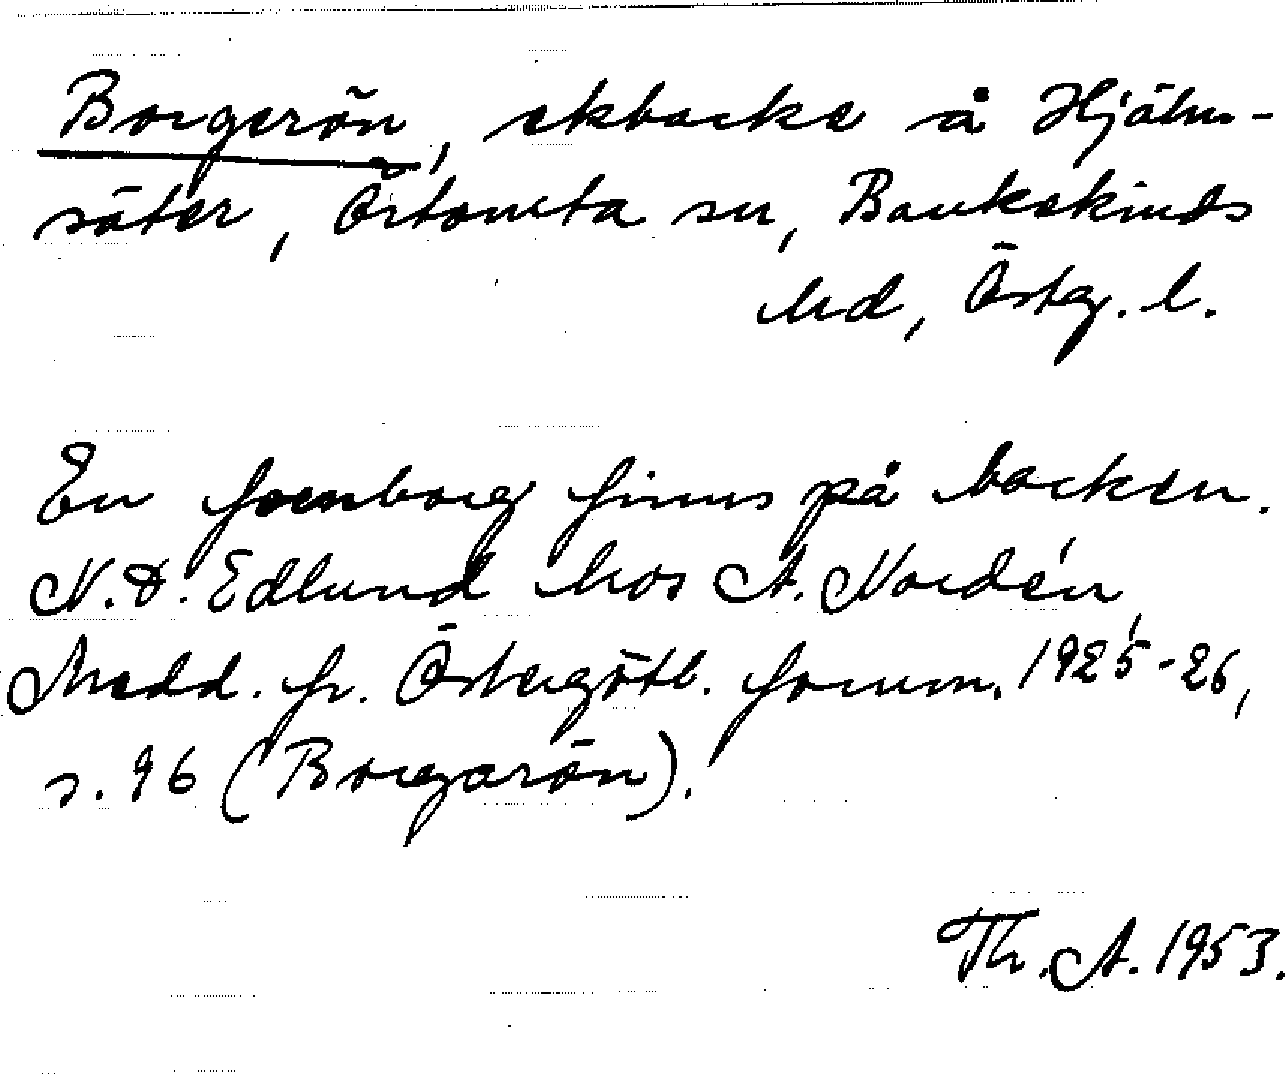 Borgerön, ekbacke å Hjälm-
säter, Örtomta sn, Bankekinds
hd, Österg. l.
En fornborg finns på backen.
N. D. Edlund hos A. Nordén,
Medd. fr. Östergötl. fornm. 1925-26,
s. 96 (Borgarön).
Th. A. 1953.